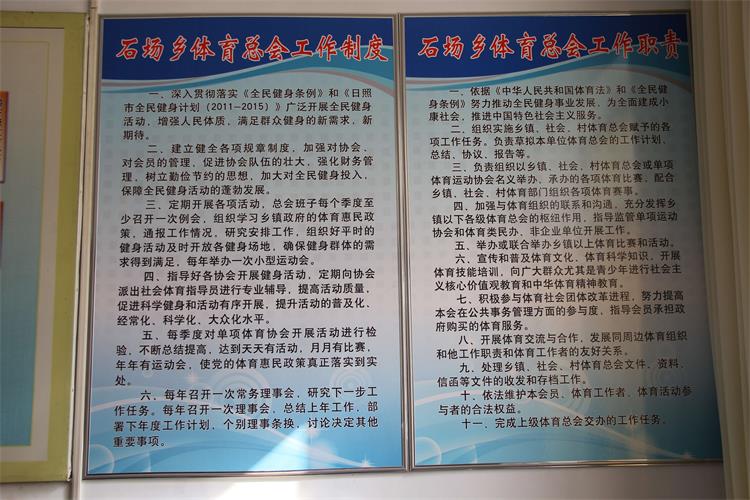 石场乡体育总会工作制度
一、深入贯彻落实《全民健身条例》和《日照
市全民健身计划（2011—2015）》广泛开展全民健身
活动，增强人民体质，满足群众健身的新需求，新
期待。
二、建立健全各项规章制度，加强对协会、
对会员的管理，促进协会队伍的壮大，强化财务管
理，树立勤俭节约的思想，加大对全民健身投入，
保障全民健身活动的蓬勃发展。
三、定期开展各项活动，总会班子每个季度至
少召开一次例会，组织学习乡镇政府的体育惠民政
策，通报工作情况，研究安排工作，组织好平时的
健身活动及时开放各健身场地，确保健身群体的需
求得到满足，每年举办一次小型运动会。
四、指导好各协会开展健身活动，定期向协会
派出社会体育指导员进行专业辅导，提高活动质量，
促进科学健身和活动有序开展，提升活动的普及化、
经常化、科学化、大众化水平。
五、每季度对单项体育协会开展活动进行检
验，不断总结提高，达到天天有活动，月月有比赛，
年年有运动会，使党的体育惠民政策真正落实到实
处。
六、每年召开一次常务理事会，研究下一步工
作任务。每年召开一次理事会，总结上年工作，部
署下年度工作计划、个别理事条换，讨论决定其他
重要事项。
石场乡体育总会工作职责
一、依据《中华人民共和国体育法》和《全民健
身条例》努力推动全民健身事业发展，为全面建成小
康社会，推进中国特色社会主义服务。
二、组织实施乡镇、社会、村体育总会赋予的各
项工作任务。负责草拟本单位体育总会的工作计划、
总结、协议、报告等。
三、负责组织以乡镇、社会、村体育总会或单项
体育运动协会名义举办、承办的各项体育比赛，配合
乡镇、社会、村体育部门组织各项体育赛事。
四、加强与体育组织的联系和沟通，充分发挥乡
镇以下各级体育总会的枢纽作用，指导监管单项运动
协会和体育类民办、非企业单位开展工作。
五、举办或联合举办乡镇以上体育比赛和活动。
六、宣传和普及体育文化、体育科学知识，开展
体育技能培训，向广大群众尤其是青少年进行社会主
义核心价值观教育和中华体育精神教育。
七、积极参与体育社会团体改革进程，努力提高
本会在公共事务管理方面的参与度，指导会员承担政
府购买的体育服务。
八、开展体育交流与合作，发展同周边体育组织
和他工作职责和体育工作者的友好关系。
九、处理乡镇、社会、村体育总会文件、资料、
信函等文件的收发和存档工作。
十、依法维护本会员、体育工作者、体育活动参
与者的合法权益。
十一、完成上级体育总会交办的工作任务。